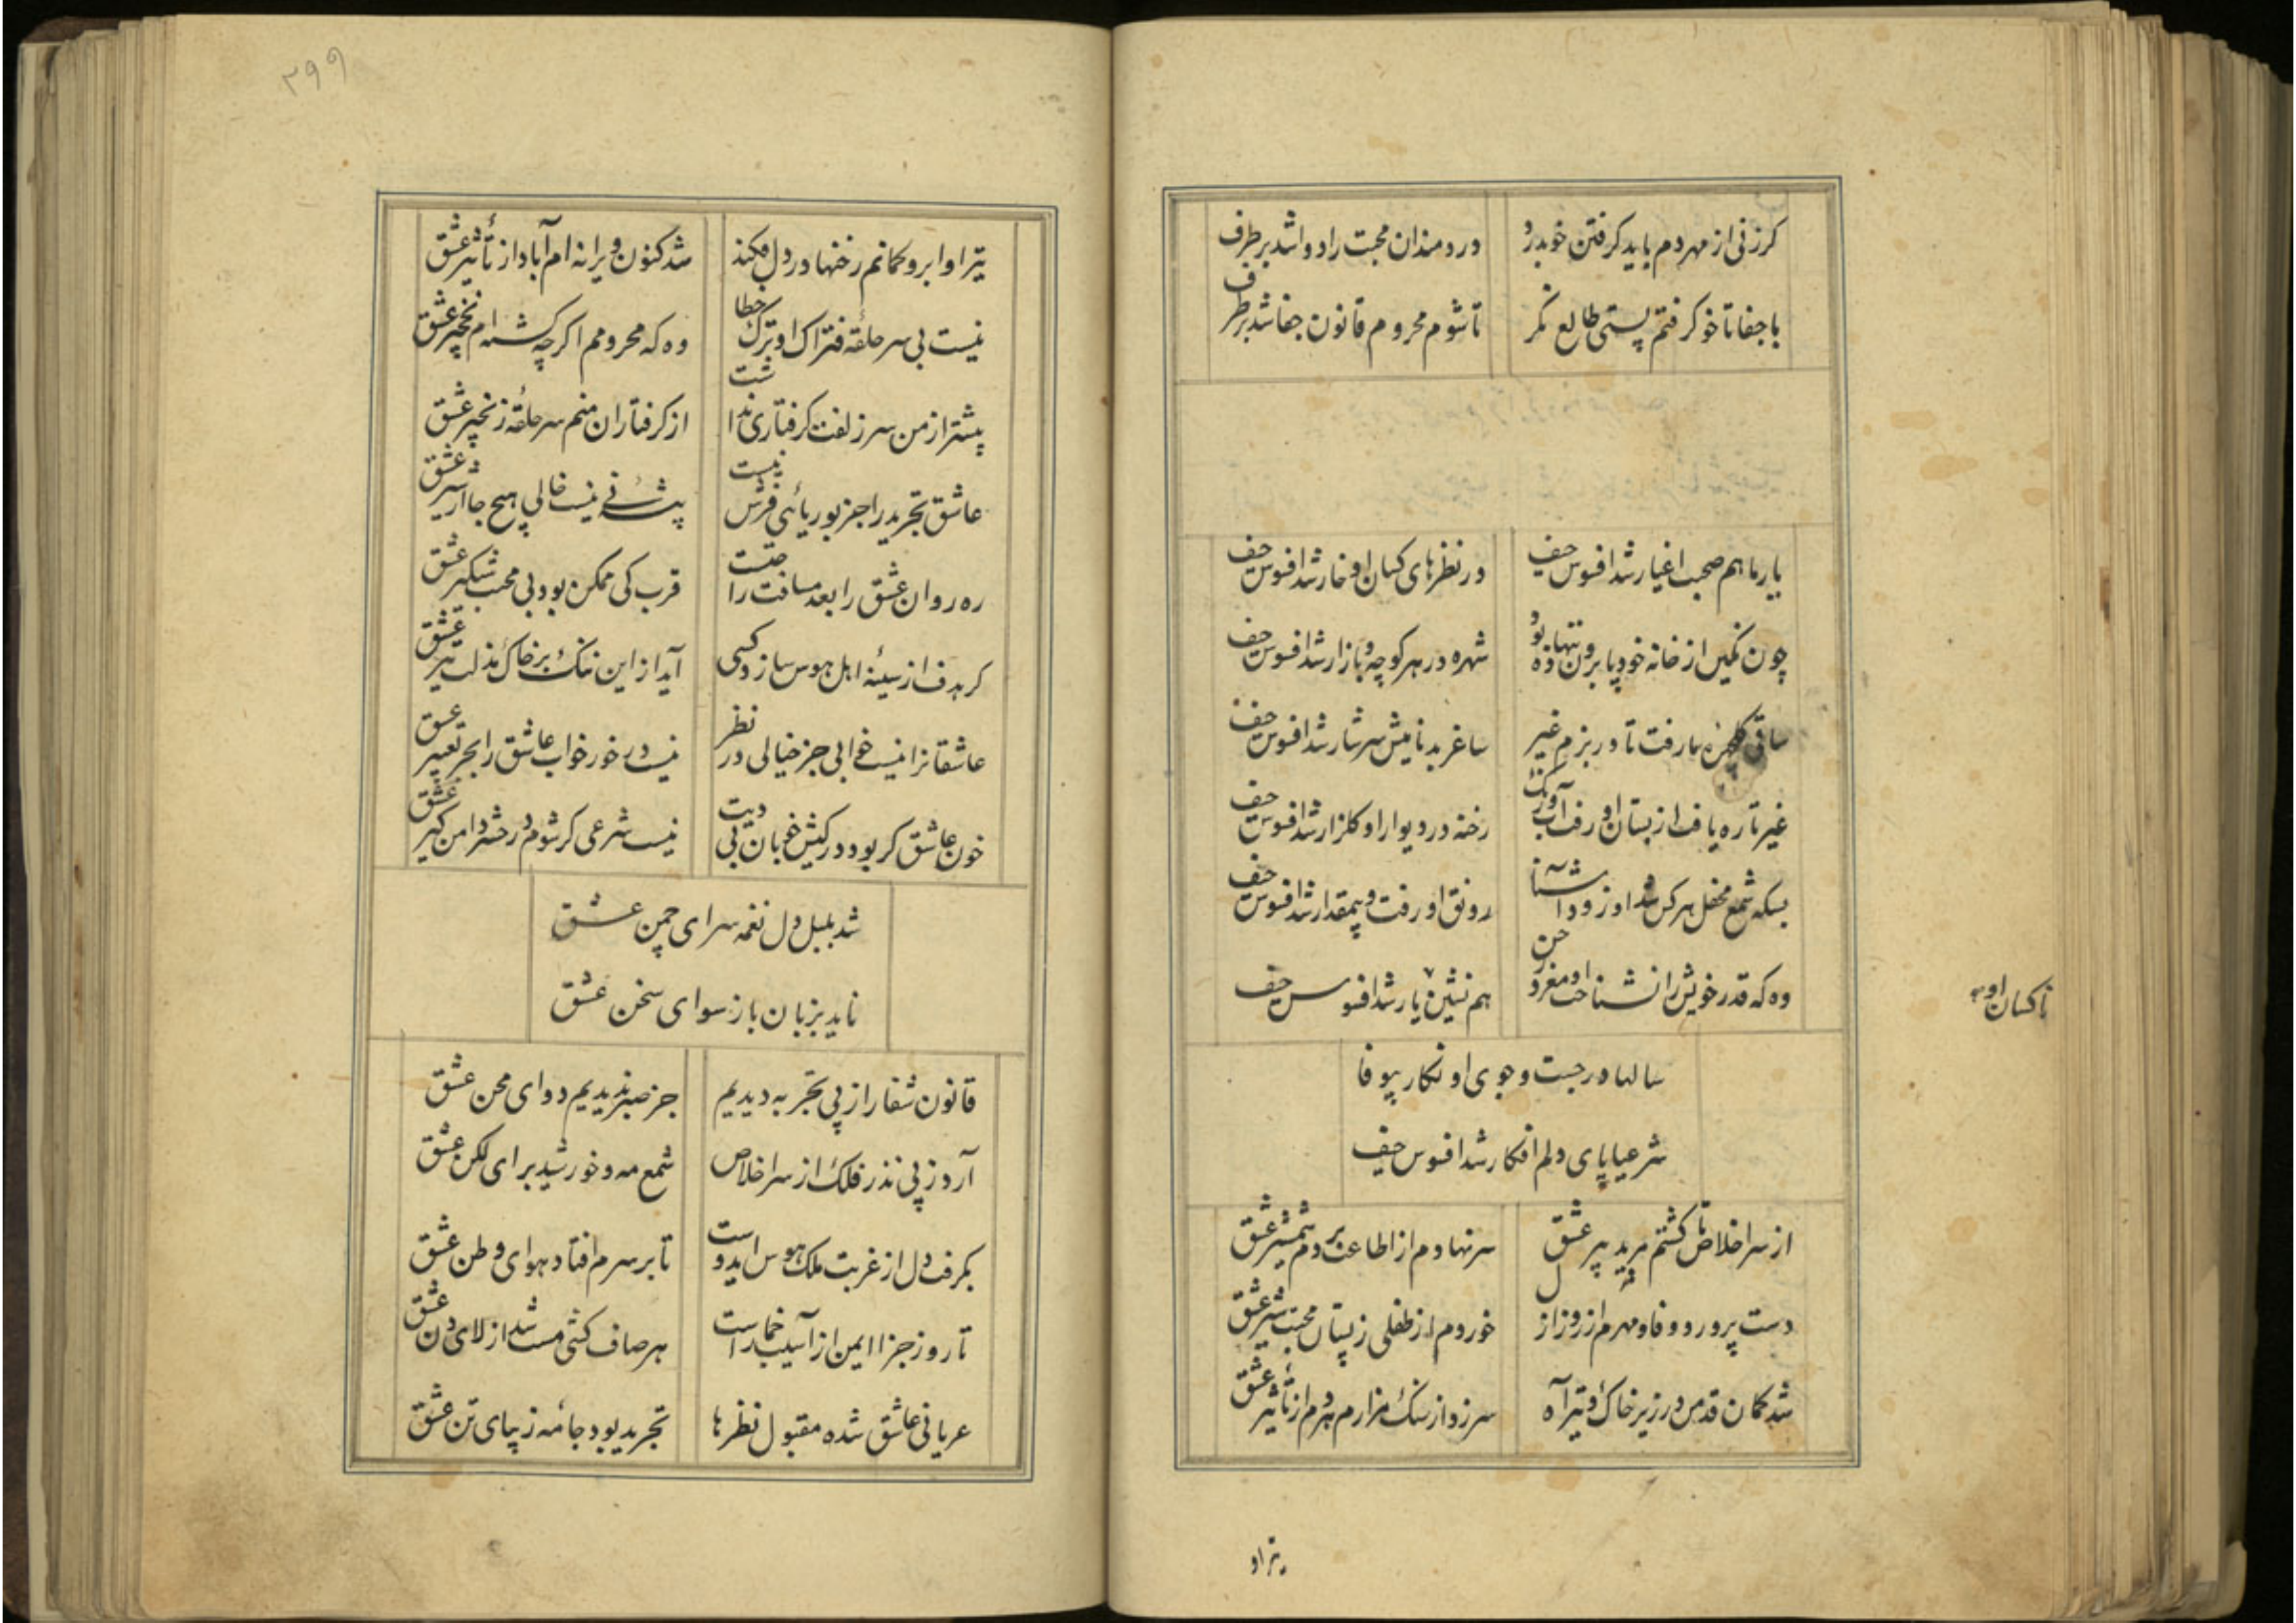 کر زنی از مهر دم باید کرفتن خو بدرد
دردمندان محبت را دوا شد بر طرف
با جفا تا خو کرفتم پستی طالع نکر
تا شوم محروم قانون جفا شد بر طرف
یار ما هم صحبت اغیار شد افسوس حیف
در نظرهای کسان او خار شد افسوس حیف
چون نکین از خانه خود پا برون تنها
شهره در هر کوچه و بازار شد افسوس حیف
ساقی ما رفت تا در بزم غیر
ساغر بدنامیش سرشار شد افسوس حیف
غیر تا ره یافت از بستان او رفت آب
رخنه در دیوار او کلزار شد افسوس حیف
بسکه شمع محفل هر کس شد او زود آشنا
رونق او رفت و بیمقدار شد افسوس حیف
وه که قدر خویش را نشناخت او مغرور حسن
هم نشین یار شد افسوس حیف
ناکسان او
سالها در جست و جوی او نکار بیوفا
شرعیا پای دلم افکار شد افسوس حیف
از سر اخلاص تا کشتم مرید پیر عشق
سر نهادم از اطاعت بر دم شمشیر عشق
دست پرورد وفا و مهرم از روز ازل
خوردم از طفلی ز پستان محبت شیر عشق
شد کمان قدمن در زیر خاک و تیر آه
سر زد از سنک مزارم هر دم از تأثیر عشق
تیر او
۲۹۹
تیر او ابرو کمانم رخنها در دل فکند
شد کنون ویرانه ام آباد از تأثیر عشق
نیست بی سر حلقه فتراک او ترک خطا
وه که محرومم اکر چه کشته ام نخجیر عشق
پیشتر از من سر زلفت کرفتاری نداشت
از کرفتاران منم سر حلقه زنجیر عشق
عاشق تجرید را جز بوریائی فرش نیست
نیست خالی هیچ جا از شیر عشق
ره روان عشق را بعد مسافت راحتست
قرب کی ممکن بود بی محبت شبکیر عشق
کر هدف از سینه اهل هوس سازد کسی
آید از این ننک بر خاک مذلت تیر عشق
عاشقانرا نیست خوابی جز خیالی در نظر
نیست در خور خواب عاشق را بجز تعبیر عشق
خون عاشق کر بود در کیش خوبان بی دیت
نیست شرعی کر شوم در حشر دامن کیر عشق
شد بلبل دل نغمه سرای چمن عشق
ناید بزبان باز سوای سخن عشق
قانون شفا را ز پی تجربه دیدیم
جز صبر ندیدیم دوای محن عشق
آرد ز پی نذر فلک از سر اخلاص
شمع مه و خورشید برای لکن عشق
بکرفت دل از غربت ملک هوس
تا بر سرم افتاد هوای وطن عشق
تا روز جزا ایمن از آسیب خمار است
هر صاف کشی مست شد از لای دن عشق
عریانی عاشق شده مقبول نظرها
تجرید بود جامه زیبای تن عشق